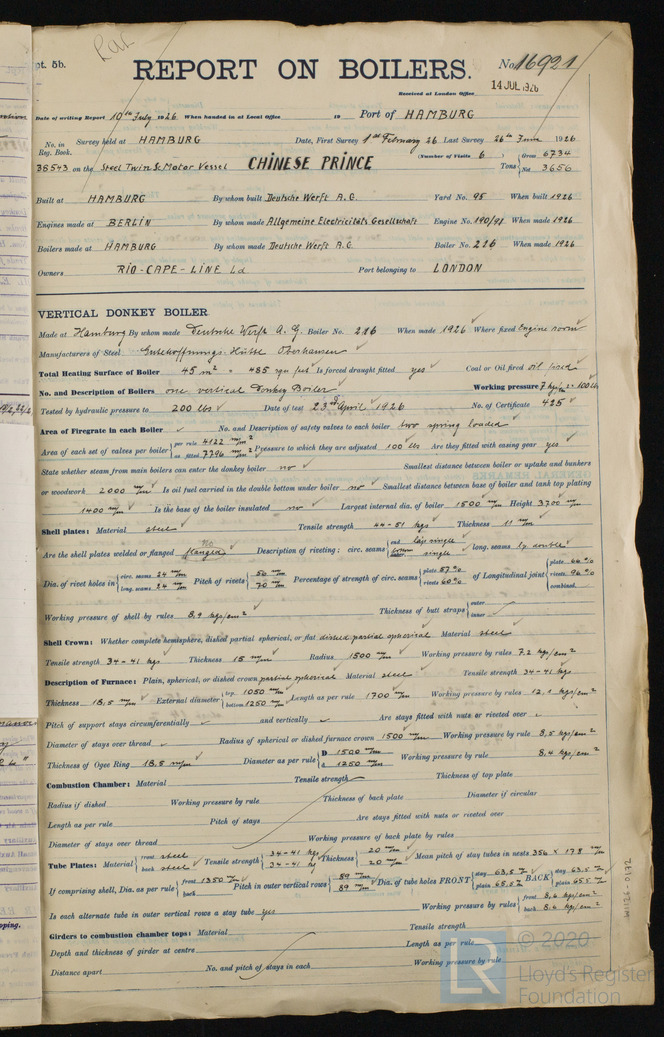 pt. 5b.
REPORT ON BOILERS.
No. 16921
Received at London Office 14 JUL 1926
Date of writing Report 10th July 1926 When handed in at Local Office 19 Port of HAMBURG
No. in Reg. Book. Survey held at HAMBURG Date, First Survey 1st February 26 Last Survey 26th June 1926
(Number of Visits 6)
38543 on the Steel Twin Sc Motor Vessel CHINESE PRINCE Tons Gross 6734 Net 3656
Built at HAMBURG By whom built Deutsche Werft A.G. Yard No. 95 When built 1926
Engines made at BERLIN By whom made Allgemeine Electricitäts Gesellschaft Engine No. 190/91 When made 1926
Boilers made at HAMBURG By whom made Deutsche Werft A.G. Boiler No. 216 When made 1926
Owners RIO-CAPE-LINE Ld Port belonging to LONDON
VERTICAL DONKEY BOILER
Made at Hamburg By whom made Deutsche Werft A.G. Boiler No. 216 When made 1926 Where fixed Engine room
Manufacturers of Steel Gutehoffnungs-Hütte Oberhausen
Total Heating Surface of Boiler 45 m² = 485 squ feet Is forced draught fitted yes Coal or Oil fired oil fired
No. and Description of Boilers one vertical Donkey Boiler Working pressure 7 kgs/cm² = 100 lbs
Tested by hydraulic pressure to 200 lbs Date of test 23rd April 1926 No. of Certificate 425
Area of Firegrate in each Boiler No. and Description of safety valves to each boiler two spring loaded
Area of each set of valves per boiler per rule 4122 m/m² as fitted 7796 m/m² Pressure to which they are adjusted 100 lbs Are they fitted with easing gear yes
State whether steam from main boilers can enter the donkey boiler no Smallest distance between boiler or uptake and bunkers
or woodwork 2000 m/m Is oil fuel carried in the double bottom under boiler no Smallest distance between base of boiler and tank top plating
1400 m/m Is the base of the boiler insulated no Largest internal dia. of boiler 1500 m/m Height 3700 m/m
Shell plates: Material steel Tensile strength 44-51 kgs Thickness 11 m/m
Are the shell plates welded or flanged No flanged Description of riveting: circ. seams end lap single inter. single long. seams lap double
Dia. of rivet holes in circ. seams 24 m/m long. seams 24 m/m Pitch of rivets 56 m/m 70 m/m Percentage of strength of circ. seams plate 57% rivets 60% of Longitudinal joint plate 66% rivets 96% combined
Working pressure of shell by rules 8,9 kgs/cm² Thickness of butt straps outer inner
Shell Crown: Whether complete hemisphere, dished partial spherical, or flat dished partial spherical Material steel
Tensile strength 34-41 kgs Thickness 15 m/m Radius 1500 m/m Working pressure by rules 7.2 kgs/cm²
Description of Furnace: Plain, spherical, or dished crown partial spherical Material steel Tensile strength 34-41 kgs
Thickness 18,5 m/m External diameter top 1050 m/m bottom 1250 m/m Length as per rule 1700 m/m Working pressure by rules 12,1 kgs/cm²
Pitch of support stays circumferentially and vertically Are stays fitted with nuts or riveted over
Diameter of stays over thread Radius of spherical or dished furnace crown 1500 m/m Working pressure by rule 8,5 kgs/cm²
Thickness of Ogee Ring 18.5 m/m Diameter as per rule D 1500 m/m d 1250 m/m Working pressure by rule 8,4 kgs/cm²
Combustion Chamber: Material Tensile strength Thickness of top plate
Radius if dished Working pressure by rule Thickness of back plate Diameter if circular
Length as per rule Pitch of stays Are stays fitted with nuts or riveted over
Diameter of stays over thread Working pressure of back plate by rules
Tube Plates: Material front steel back steel Tensile strength 34-41 kg 34-41 kg Thickness 20 m/m 20 m/m Mean pitch of stay tubes in nests 356 x 178 m/m
If comprising shell, Dia. as per rule front 1350 m/m back Pitch in outer vertical rows 89 m/m 89 m/m Dia. of tube holes FRONT stay 63.5 plain 65.5 BACK stay 63.5 plain 65.5
Is each alternate tube in outer vertical rows a stay tube yes Working pressure by rules front 8,6 kgs/cm² back 8.6 kgs/cm²
Girders to combustion chamber tops: Material Tensile strength
Depth and thickness of girder at centre Length as per rule
Distance apart No. and pitch of stays in each Working pressure by rule
W1124-0172
LR
© 2020
Lloyd's Register
Foundation